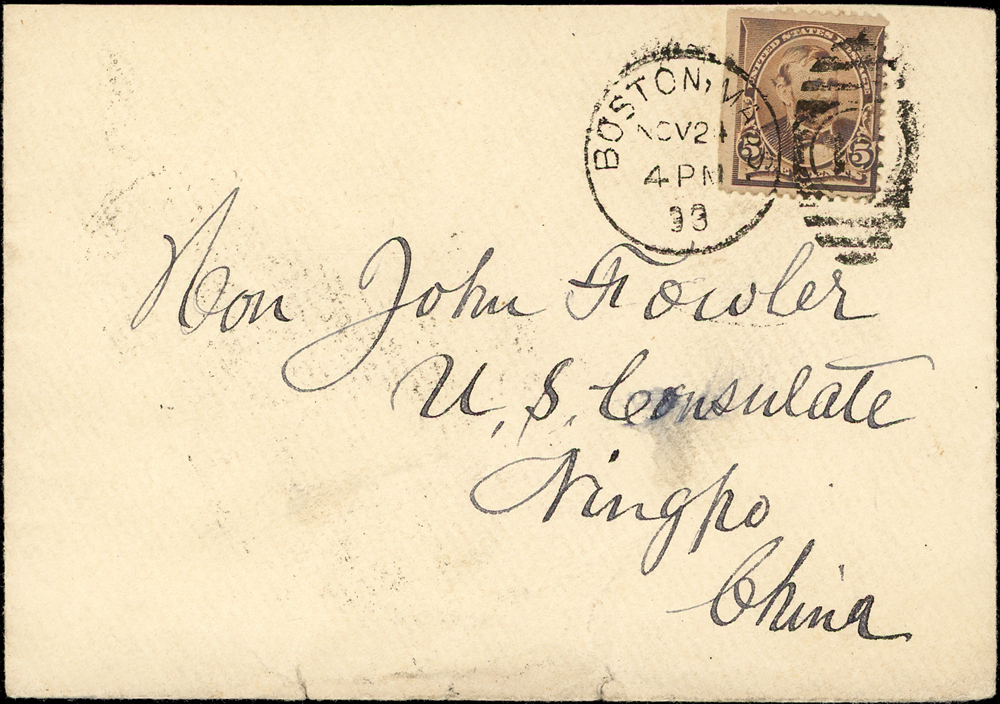 UNITED STATES POSTAGE
5 5
BOSTON, MASS
NOV 24
4 PM
93
Hon John Fowler
U.S. Consulate
Ningpo
China